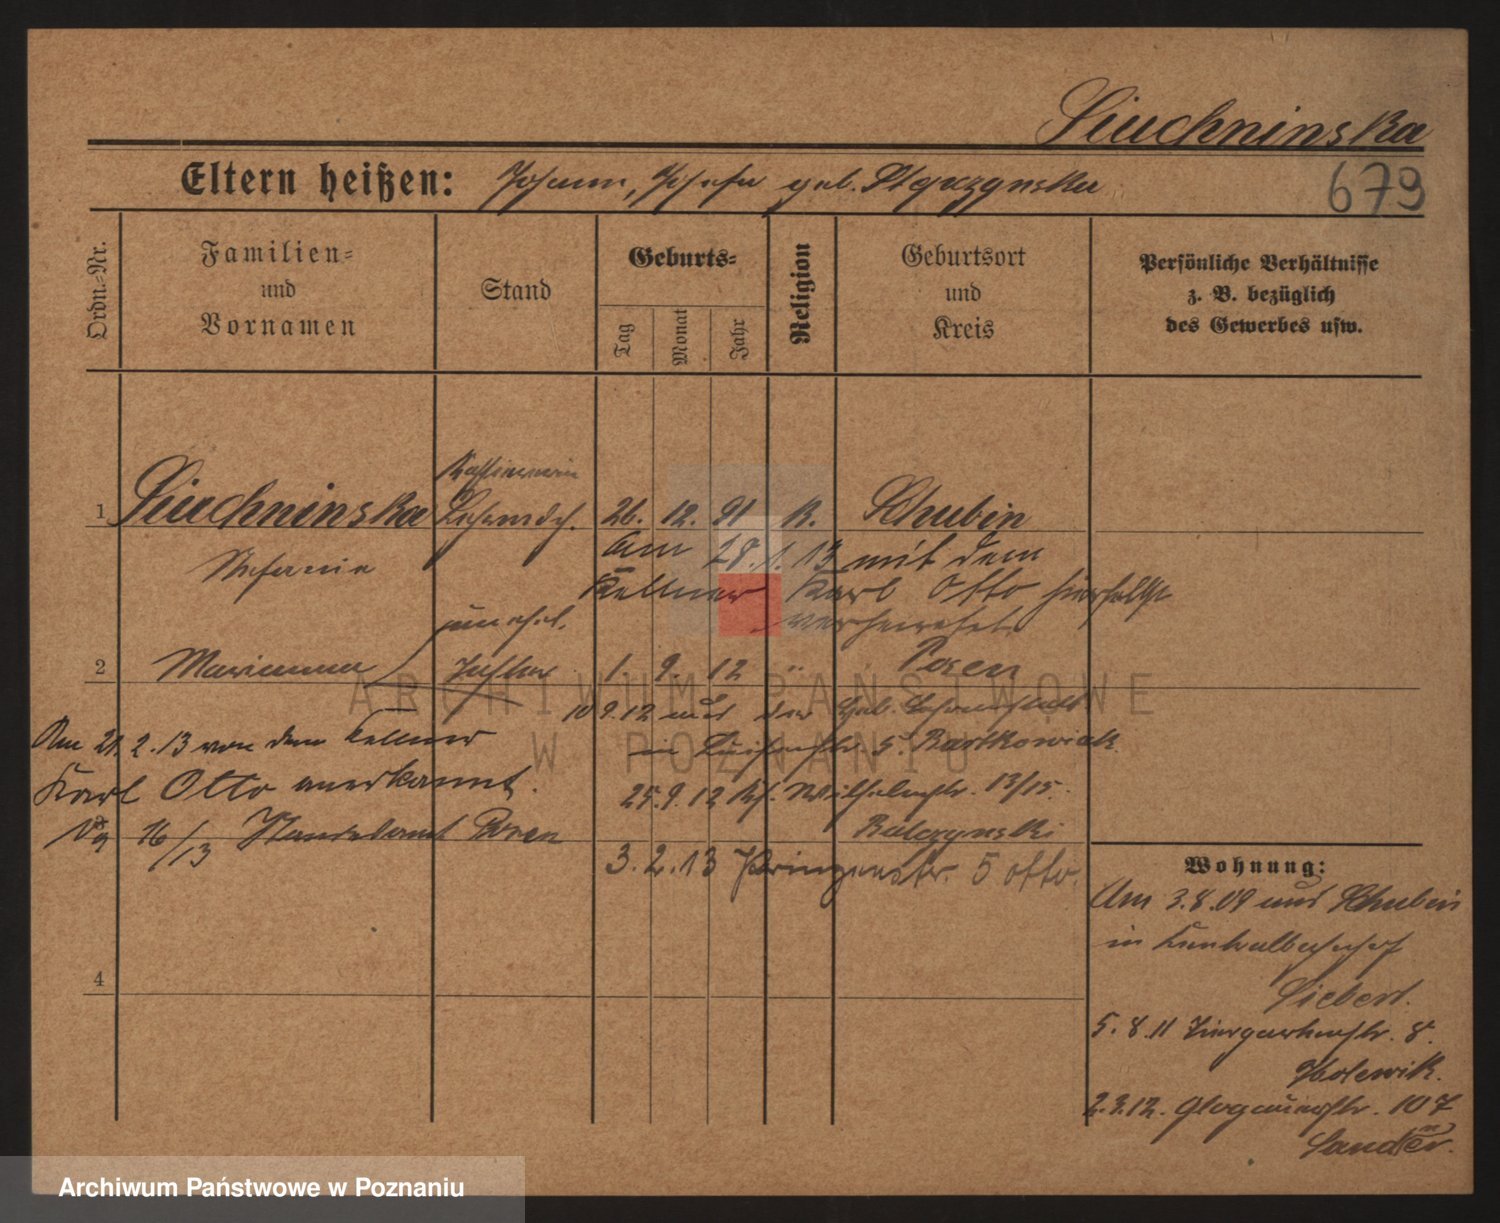 Siuchninska
Eltern heißen: Johann, Josefa geb. Stqczynska
679
Ordn.-Nr.
Familien-
und
Vornamen
Stand
Geburts-
Tag
Monat
Jahr
Religion
Geburtsort
und
Kreis
Persönliche Verhältnisse
z. B. bezüglich
des Gewerbes usw.
1 Siuchninska 26. 12. 91 K. Schubin
Stefanie
Am 28.1.13 mit dem
Kellner Karl Otto hierselbst
verheiratet
unehel.
2 Marianna Tochter 1. 9. 12 " Posen
10 9.12 aus der Heb. Lehranstalt
in 5. Bartkowiak
25.9.12 Wilhelmstr. 13/15.
3. 2. 13 Prinzenstr. 5 Otto.
Am 21.2.13 von dem Kellner
Karl Otto anerkannt.
16/13 Standesamt Posen
4
Wohnung:
Am 3.8.09 aus Schubin
in Zentralbahnhof
Siebert.
5. 8. 11 Tiergartenstr. 8.
2.3.12. Glogauerstr. 107
Sandler.
ARCHIWUM PAŃSTWOWE
W POZNANIU
Archiwum Państwowe w Poznaniu